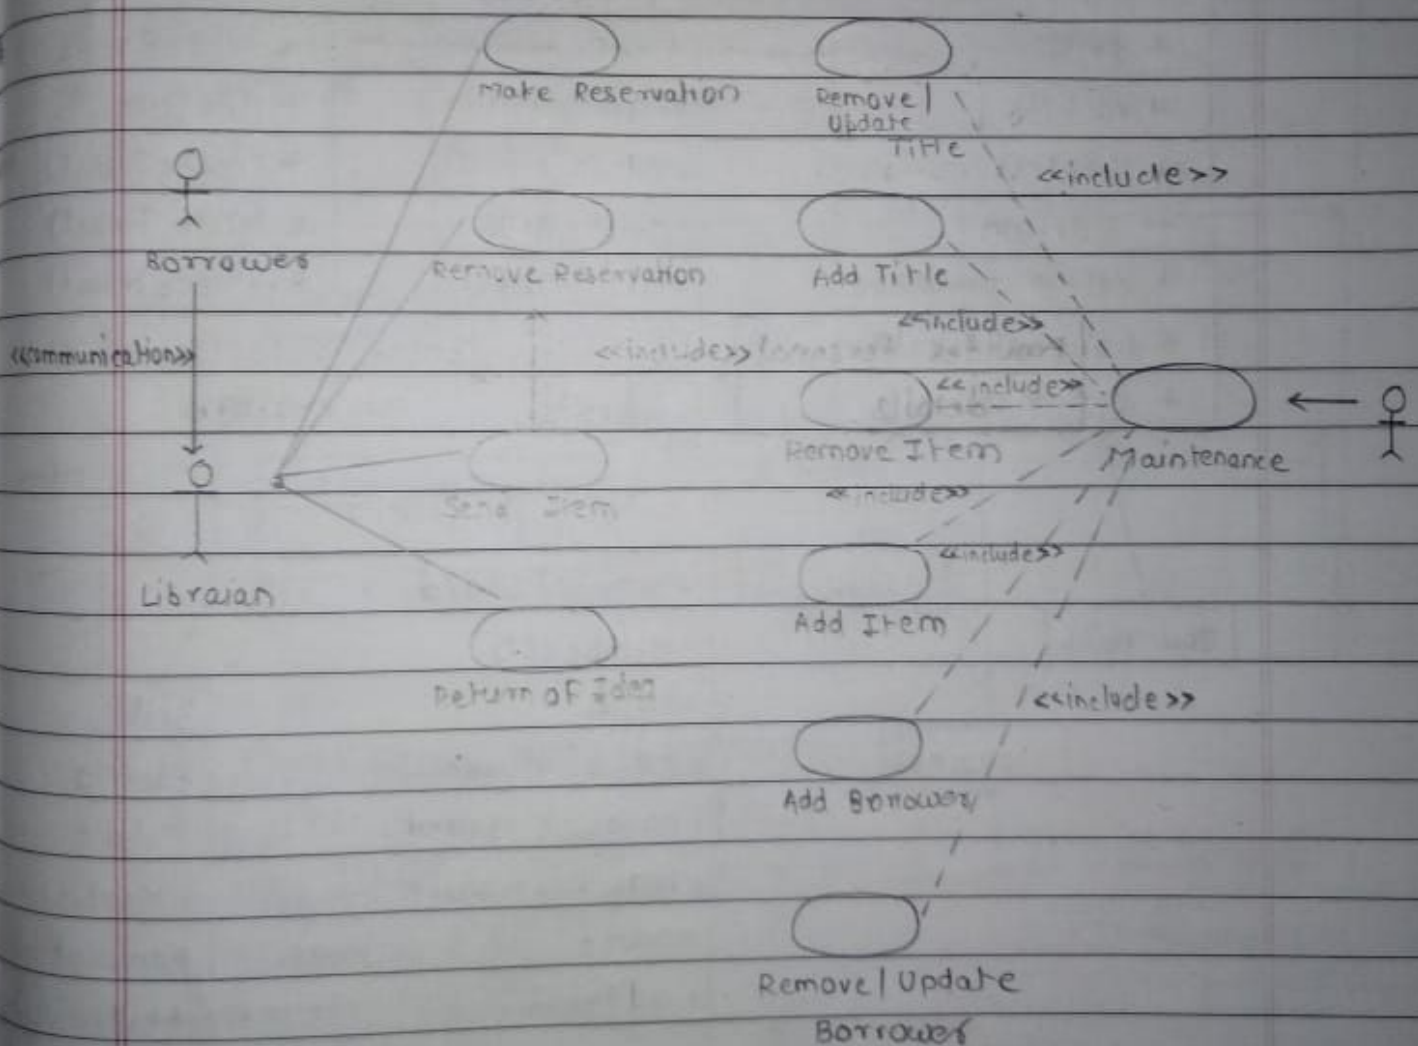 Make Reservation
Remove/
Update
Title
<<include>>
Borrower
Remove Reservation
Add Title
<<include>>
<<communication>>
<<include>>
<<include>>
Remove Item
Maintenance
<<include>>
Send Item
<<include>>
Libraian
Add Item
Return of
<<include>>
Add Borrower
Remove/Update
Borrower